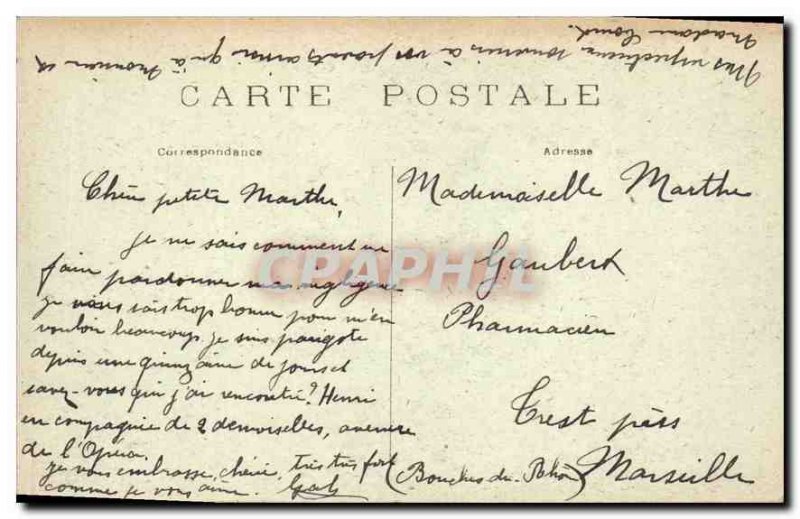 Mes respectueux souvenirs à vos parents ainsi qu'à Monsieur et
Madame
CARTE POSTALE
Correspondance
Adresse
Chère petite Marthe,
je ne sais comment me
faire pardonner ma négligence
je vous sais trop bonne pour m'en
vouloir beaucoup je suis parigote
depuis une quinzaine de jours et
savez-vous qui j'ai rencontré? Henri
en compagnie de 2 demoiselles, avenue
de l'Opéra.
je vous embrasse, chérie, très très fort
comme je vous aime. Gab
Mademoiselle Marthe
Gaubert
Pharmacien
Trest près
Marseille
(Bouches-du-Rhône)
CPAPHIL